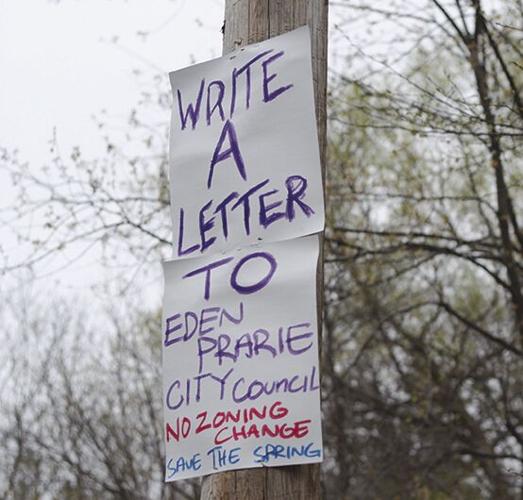 WRITE
A
LETTER
TO
EDEN
PRARIE
CITY COUNCIL
NO ZONING
CHANGE
SAVE THE SPRING